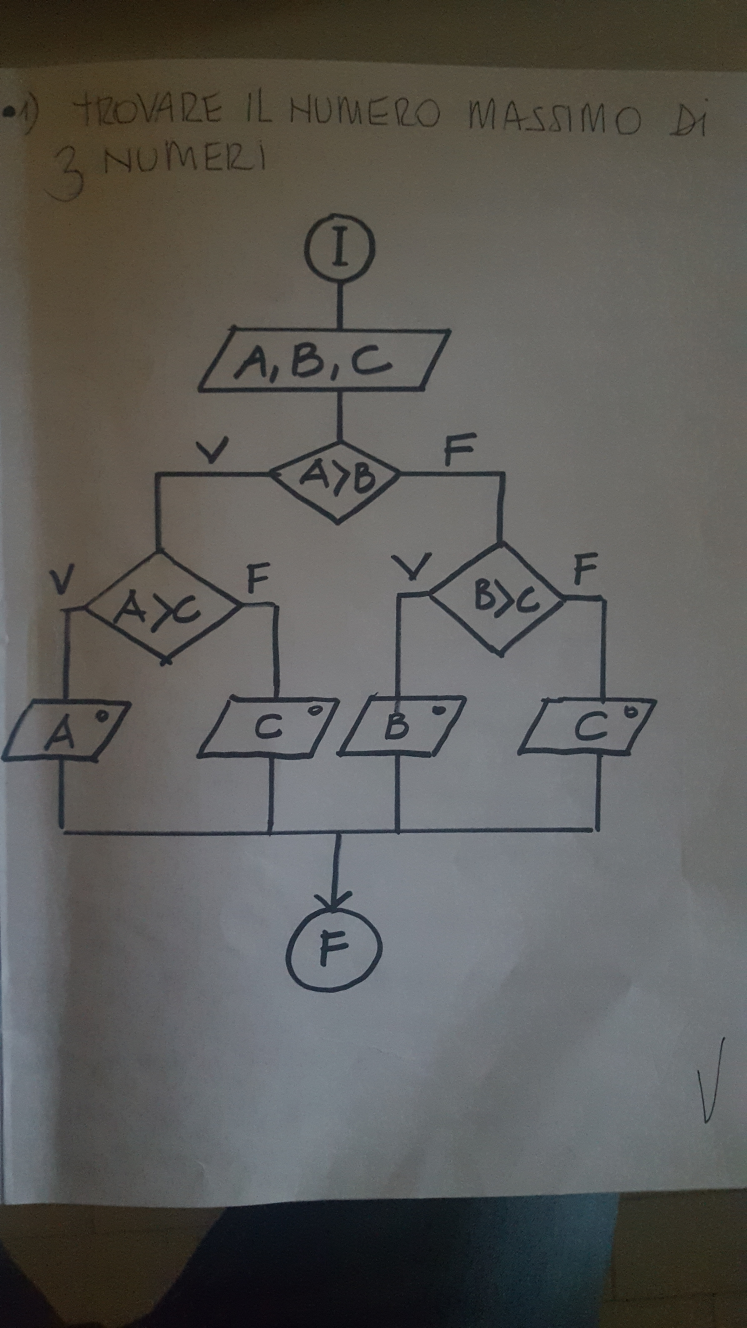 •1) TROVARE IL NUMERO MASSIMO DI
3 NUMERI
I
A, B, C
V A>B F
V A>C F V B>C F
A° C° B° C°
F